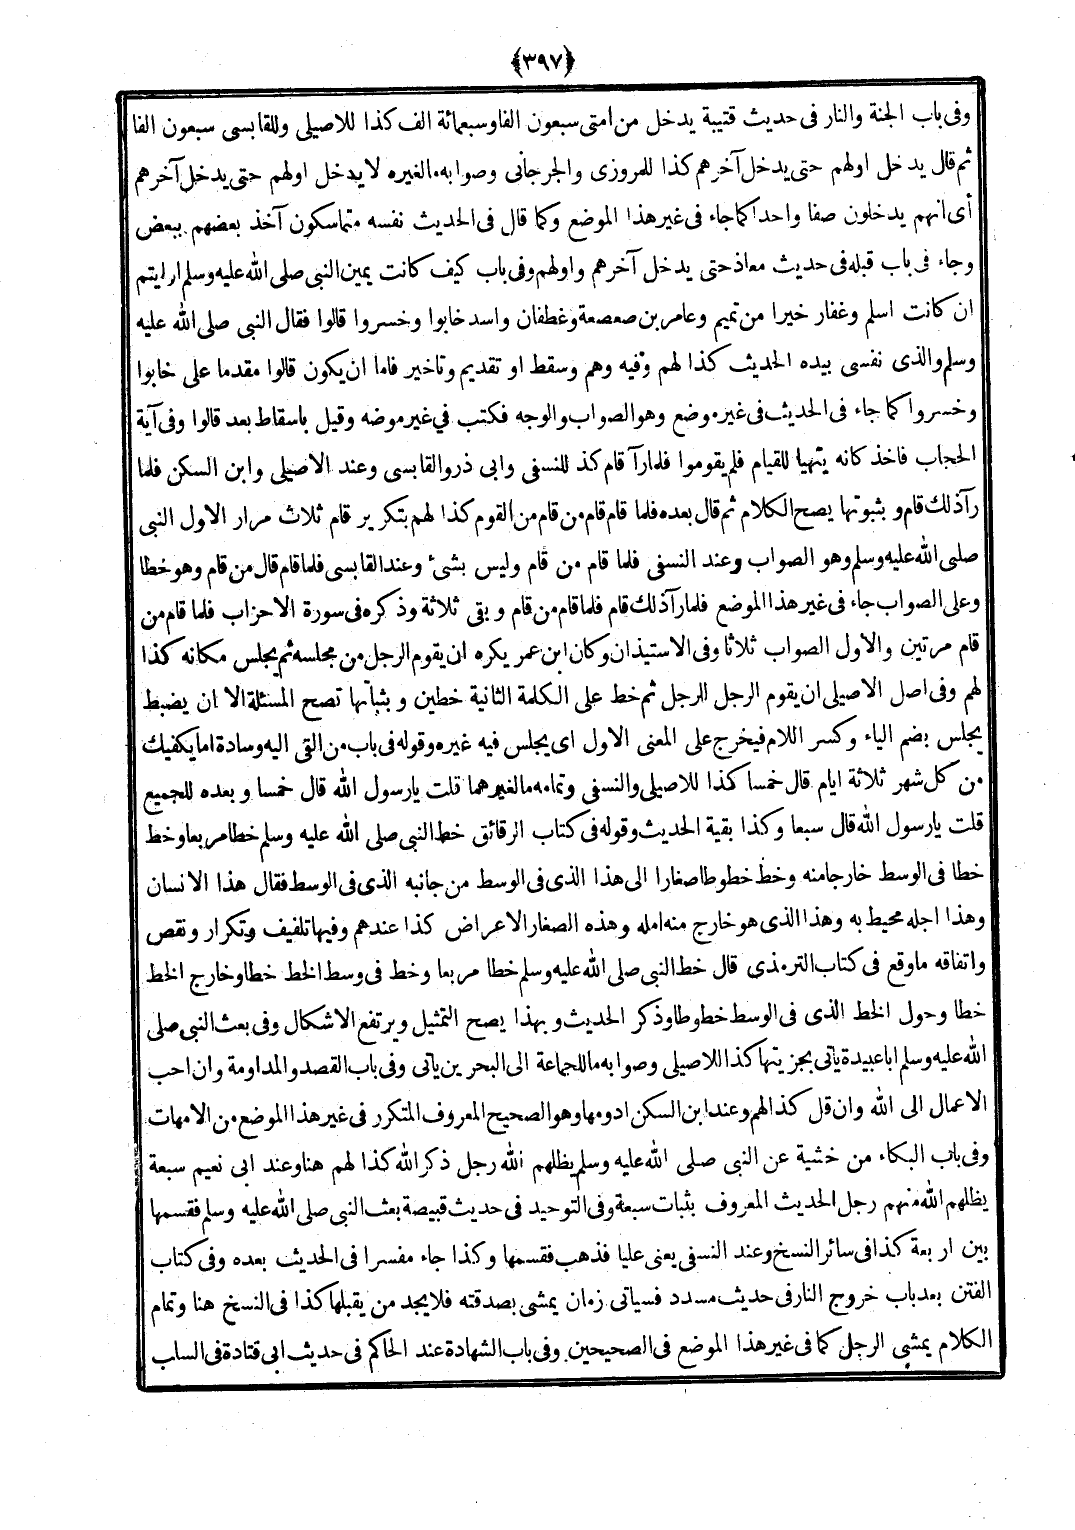 ﴿٣٩٧﴾
وفى باب الجنة والنار فى حديث قتيبة يدخل من امتى سبعون الفا وسبعمائة الف كذا للاصيلى وللقابسى سبعون الفا
ثم قال يدخل اولهم حتى يدخل آخرهم كذا للمروزى والجرجانى وصوابه ما لغيره لا يدخل اولهم حتى يدخل آخرهم
أى انهم يدخلون صفا واحدا كما جاء فى غير هذا الموضع وكما قال فى الحديث نفسه متماسكون آخذ بعضهم ببعض
وجاء فى باب قبله فى حديث معاذ حتى يدخل آخرهم واولهم وفى باب كيف كانت يمين النبى صلى الله عليه وسلم ارايتم
ان كانت اسلم وغفار خيرا من تميم وعامر بن صعصعة وغطفان واسد خابوا وخسروا قالوا فقال النبى صلى الله عليه
وسلم والذى نفسى بيده الحديث كذا لهم وفيه وهم وسقط او تقديم وتاخير فاما ان يكون قالوا مقدما على خابوا
وخسروا كما جاء فى الحديث فى غير موضع وهو الصواب والوجه فكتب في غير موضه وقيل باسقاط بعد قالوا وفى آية
الحجاب فاخذ كانه يتهيا للقيام فلم يقوموا فلما رآ قام كذ للنسفى وابى ذر والقابسى وعند الاصيلى وابن السكن فلما
رآ ذلك قام و بثبوتها يصح الكلام ثم قال بعده فلما قام قام من قام من القوم كذا لهم بتكرير قام ثلاث مرار الاول النبى
صلى الله عليه وسلم وهو الصواب وعند النسفى فلما قام من قام وليس بشئ وعند القابسى فلما قام قال من قام وهو خطا
وعلى الصواب جاء فى غير هذا الموضع فلما رآ ذلك قام فلما قام من قام و بقى ثلاثة وذكره فى سورة الاحزاب فلما قام من
قام مرتين والاول الصواب ثلاثا وفى الاستيذان وكان ابن عمر يكره ان يقوم الرجل من مجلسه ثم يجلس مكانه كذا
لهم وفى اصل الاصيلى ان يقوم الرجل الرجل ثم خط على الكلمة الثانية خطين و بثباتها تصح المسئلة الا ان يضبط
يجلس بضم الياء وكسر اللام فيخرج على المعنى الاول اى يجلس فيه غيره وقوله فى باب من القى اليه وسادة اما يكفيك
من كل شهر ثلاثة ايام قال خمسا كذا للاصيلى والنسفى وتمامه ما لغيرهما قلت يارسول الله قال خمسا و بعده للجميع
قلت يارسول الله قال سبعا وكذا بقية الحديث وقوله فى كتاب الرقائق خط النبى صلى الله عليه وسلم خطا مربعا وخط
خطا فى الوسط خارجا منه وخط خطوطا صغارا الى هذا الذى فى الوسط من جانبه الذى فى الوسط فقال هذا الانسان
وهذا اجله محيط به وهذا الذى هو خارج منه امله وهذه الصغار الاعراض كذا عندهم وفيها تلفيف وتكرار ونقص
واتفاقه ما وقع فى كتاب الترمذى قال خط النبى صلى الله عليه وسلم خطا مربعا وخط فى وسط الخط خطا وخارج الخط
خطا وحول الخط الذى فى الوسط خطوطا وذكر الحديث و بهذا يصح التمثيل ويرتفع الاشكال وفى بعث النبى صلى
الله عليه وسلم ابا عبيدة يأتى بجزيتها كذا للاصيلى وصوابه ما للجماعة الى البحرين يأتى وفى باب القصد والمداومة وان احب
الاعمال الى الله وان قل كذا لهم وعند ابن السكن ادومها وهو الصحيح المعروف المتكرر فى غير هذا الموضع من الامهات
وفى باب البكاء من خشية عن النبى صلى الله عليه وسلم يظلهم الله رجل ذكر الله كذا لهم هنا وعند ابى نعيم سبعة
يظلهم الله منهم رجل الحديث المعروف بثبات سبعة وفى التوحيد فى حديث قبيصة بعث النبى صلى الله عليه وسلم فقسمها
بين اربعة كذا فى سائر النسخ وعند النسفى يعنى عليا فذهب فقسمها وكذا جاء مفسرا فى الحديث بعده وفى كتاب
الفتن بعد باب خروج النار فى حديث مسدد فسياتى زمان يمشى بصدقته فلا يجد من يقبلها كذا فى النسخ هنا وتمام
الكلام يمشى الرجل كما فى غير هذا الموضع فى الصحيحين وفى باب الشهادة عند الحاكم فى حديث ابى قتادة فى السلب